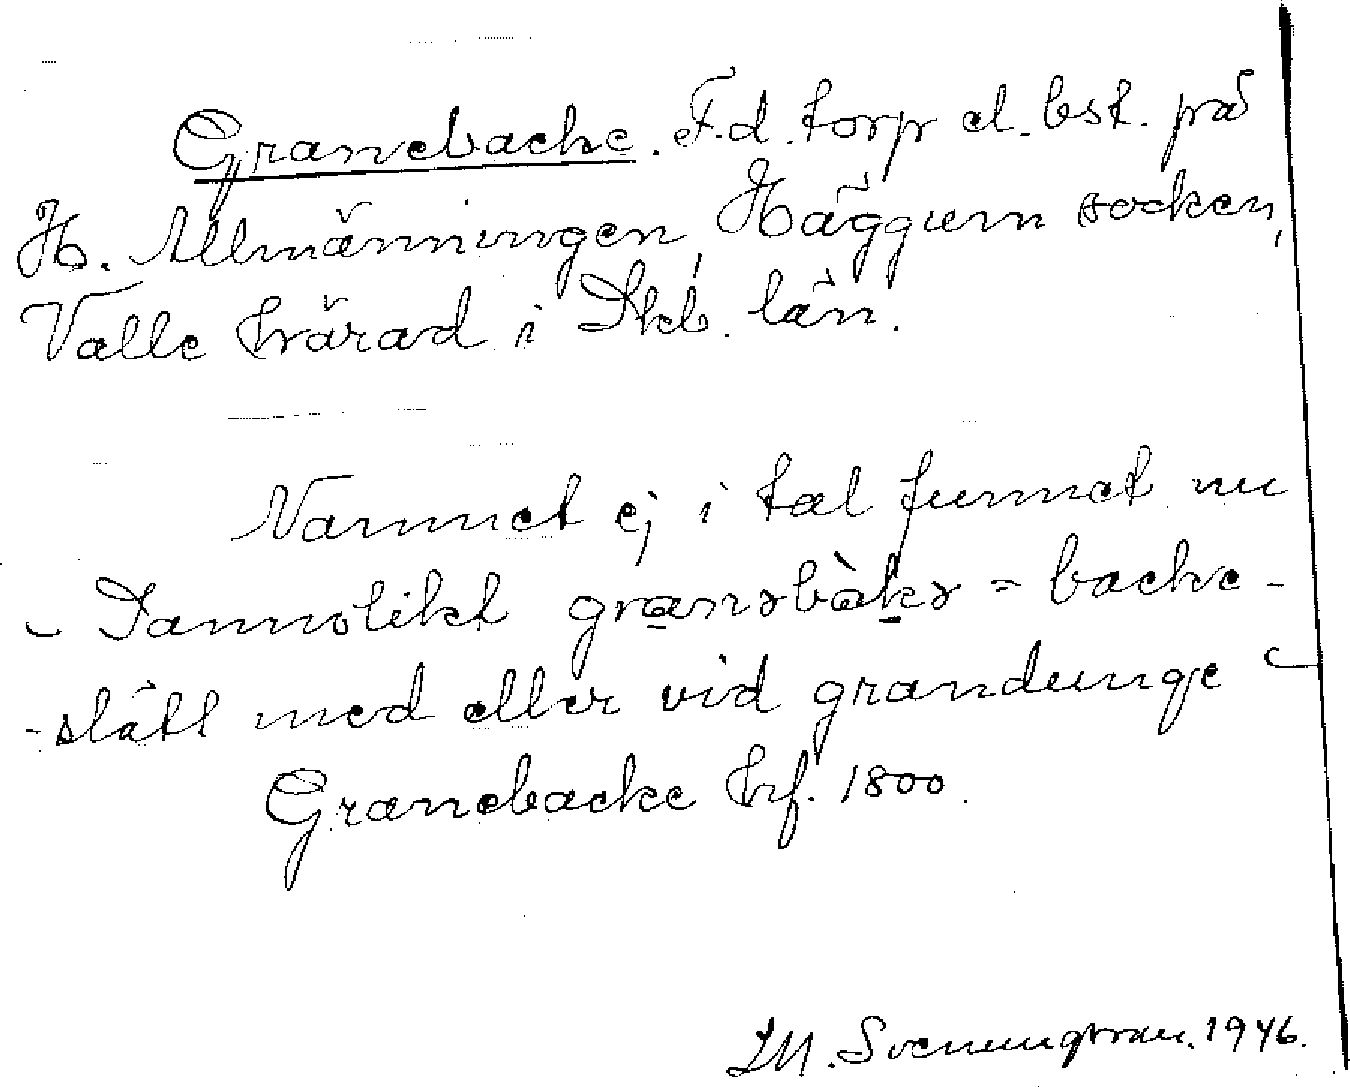 Granebacke. F.d. torp el. bst. på
H. Allmänningen, Häggum socken,
Valle härad i Skb. län.
Namnet ej i tal funnet nu
- Sannolikt granəbàkə = backe-
-slätt med eller vid grandunge -
Granebacke hf. 1800.
I.M. Svenungsson. 1946.